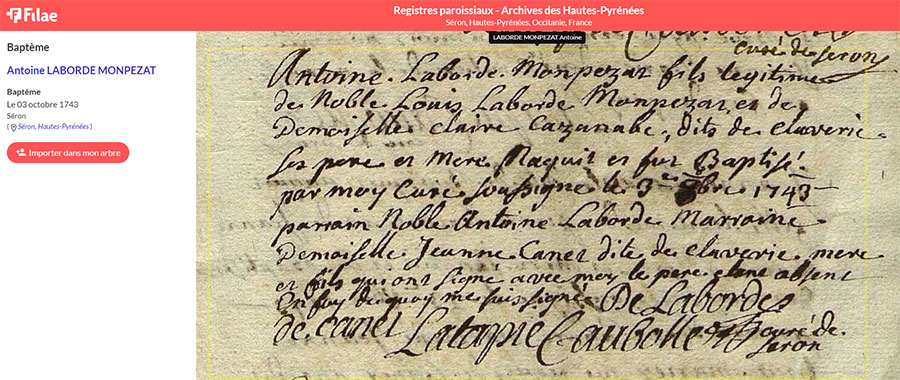 Filae
Registres paroissiaux - Archives des Hautes-Pyrénées
Séron, Hautes-Pyrénées, Occitanie, France
LABORDE MONPEZAT Antoine
Baptème
Antoine LABORDE MONPEZAT
Baptême
Le 03 octobre 1743
Séron
( Séron, Hautes-Pyrénées )
Importer dans mon arbre
curé de seron
Antoine Laborde Monpezat fils legitime
de Noble Louis Laborde Monpezat et de
Demoiselle claire Cazanabe, dits de claverie
ses pere et Mere Naquit et fut Baptisé
par moy Curé soussigné le 3e 1743
parrain Noble Antoine Laborde Marraine
Demoiselle Jeanne Canet dite de claverie mere
et fils qui ont signé avec moy le pere etant absent
En foy de quoy me suis signé De Labordes
de Canet Latapie Caubotte curé de
seron